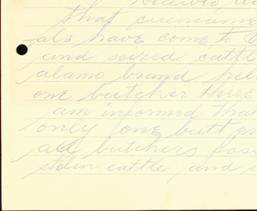 that
als have come to
and seized cattle
alamo brand
one butcher three
am informed that
only one butt
all butchers
stolen cattle and